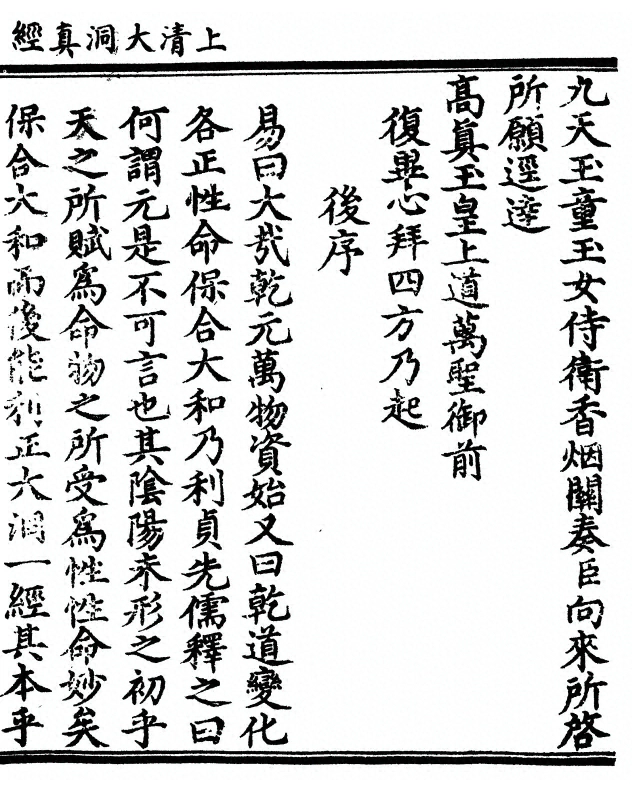 上清大洞真經
九天玉童玉女侍衛香烟關奏臣向來所啓
所願逕達
高眞玉皇上道萬聖御前
復畢心拜四方乃起
後序
易曰大哉乾元萬物資始又曰乾道變化
各正性命保合大和乃利貞先儒釋之曰
何謂元是不可言也其陰陽未形之初乎
天之所賦爲命物之所受爲性性命妙矣
保合大和而後能利正大洞一經其本乎